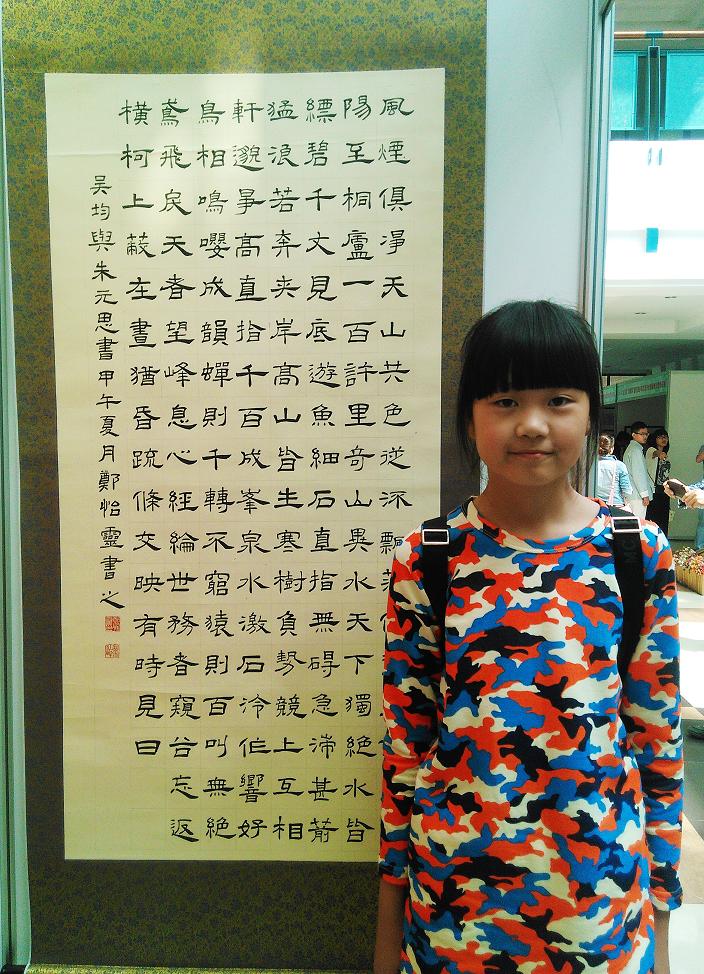 風煙俱淨天山共色從流飄
陽至桐廬一百許里奇山異水天下獨絕水皆
縹碧千丈見底遊魚細石直指無碍急湍甚箭
猛浪若奔夾岸高山皆生寒樹負勢競上互相
軒邈爭高直指千百成峯泉水激石泠作響好
鳥相鳴嚶成韻蟬則千轉不窮猿則百叫無絕
鳶飛戾天者望峰息心經綸世務者窺谷忘返
橫柯上蔽在晝猶昏疏條交映有時見日
吳均與朱元思書甲午夏月鄭怡靈書之